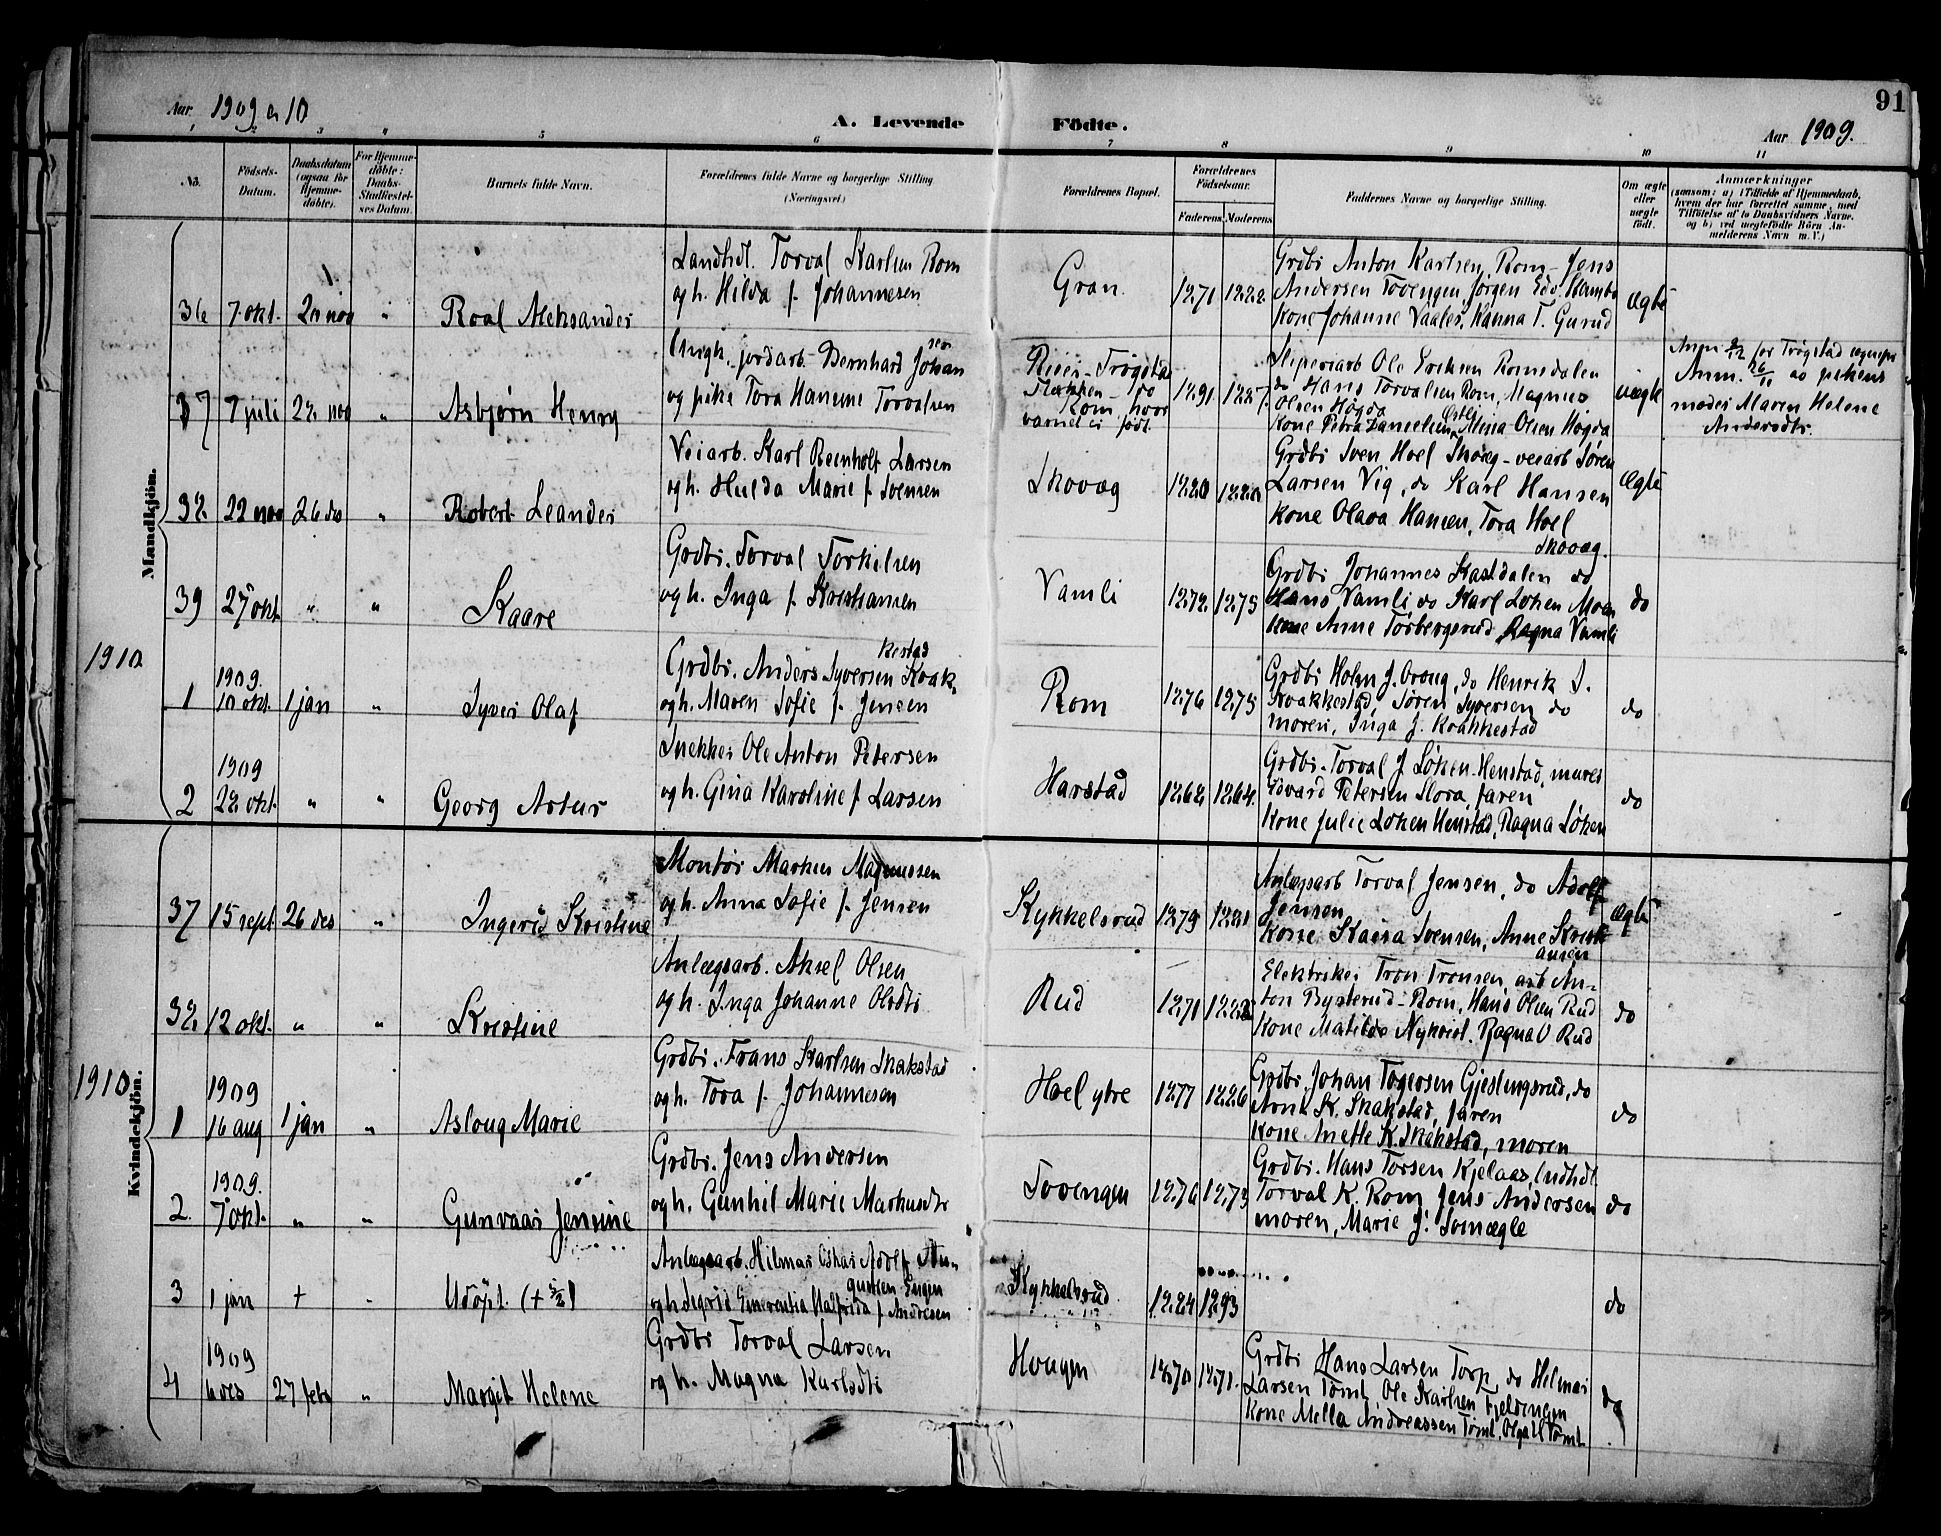 Aar 1909 o 10
A. Levende Födte.
Aar 1909.
91
1 2 3 4 5 6 7 8 9 10 11
No.
Födsels-
Datum.
Daabsdatum
(ogsaa for
Hjemme-
döbte).
For Hjemme-
döbte:
Daabs-
Stadfæstel-
ses Datum.
Barnets fulde Navn.
Forældrenes fulde Navne og borgerlige Stilling
(Næringsvei)
Forældrenes Bopæl.
Forældrenes
Födselsaar.
Faderens. Moderens.
Faddernes Navne og borgerlige Stilling.
Om ægte
eller
uægte
født.
Anmærkninger
(saasom: a) i Tilfælde af Hjemmedaab,
hvem der har forrettet samme, med
Tilføielse af to Daabsvidners Navne.
og b) ved uægtefødte Börn An-
melderens Navn m. V.)
Mandkjön.
36 7 okt. 28 nov "
Roal Aleksander
Landhdl. Torval Karlsen Rom
og h. Hilda f. Johannesen
Gran.
1871 1882
Grdbr Anton Karlsen, Rom - Jens
Andersen Tovengen, Jörgen Edv.
Kone Johanne Vaaler, Hanna T. Gurud
ægte
37 7 juli 28 nov "
Asbjørn Henry
Ungk. jordarb. Bernhard Johan
sen
og pike Tora Hanume Torvalsen
Trøgstad
Rom, hvor
barnet er født
1891 1887
Sliperiarb Ole Eriksen Romsdalen
do Hans Torvalsen Rom, Magnus
Olsen Høgda
Kone Petra Danielsen Østby, Mina Olsen Høgda
uægte
Anm 9/12 for Trøgstad sognepr
Anm. 26/11 av pikens
moder Maren Helene
Andersdtr.
38 22 nov 26 des "
Robert Leander
Veiarb. Karl Reinholt Larsen
og h. Hulda Marie f. Svensen
Skovæg
1880 1880
Grdbr Sven Hoel Skovæg - veiarb Søren
Larsen Vig, do Karl Hansen
Kone Olava Hansen, Tora Hoel
Skovæg.
Ægte
39 27 okt. " "
Kaare
Grdbr. Torval Torkilsen
og h. Inga f. Kristiansen
Vamli
1872 1875
Grdbr Johannes Kasldalen do
Hans Vamli do Karl Løken Moen
Kone Anne Torbergsrud Ragna Vamli
do
1910
1 1909.
10 okt. 1 jan "
Syver Olaf
Grdbr. Anders Syversen Kvak-
kestad
og h. Maren Sofie f. Jensen
Rom
1876 1875
Grdbr Holm J. Orong, do Henrik S.
Kvakkestad, Søren Syversen do
moren, Inga J. Kvakkestad
do
2 1909
28 okt. " "
Georg Artur
Snekker Ole Anton Petersen
og h. Gina Karoline f. Larsen
Harstad
1862 1864
Grdbr. Torval J Løken Henstad, murer
Edvard Petersen Slora, faren
Kone Julie Løken Henstad, Ragna Løken
do
Kvindekjön.
37 15 sept 26 des "
Ingerid Kristine
Montør Markus Magnussen
og h. Anna Sofie f. Jensen
Kykkelsrud
1879 1881
Anlægsarb Torval Jensen, do Adolf
Jensen
Kone Kaisa Svensen, Anne Kristi-
ansen
Ægte
38 12 okt. " "
Kristine
Anlægsarb. Aksel Olsen
og h. Inga Johanne Olsdtr
Rud
1871 1888
Elektriker Tron Tronsen, arb An-
ton Bysterud - Rom, Hans Olsen Rud
Kone Matilde Nykvist, Ragna O Rud
do
1910
1 1909
16 aug 1 jan "
Aslaug Marie
Grdbr. Frans Karlsen Skakstad
og h. Tora f. Johannesen
Hoel ytre
1877 1886
Grdbr. Johan Togersen Gjeslingsrud, do
Arnt K. Skakstad, faren
Kone Anette K. Skakstad, moren
do
2. 1909.
7 okt. " "
Gunvaar Jensine
Grdbr. Jens Andersen
og h. Gunhil Marie Markusdtr
Tovengen
1876 1873
Grdbr. Hans Torsen Kjelaas, landhdl.
Torval K. Rom Jens Andersen
moren, Marie J. Somægle
do
3 1 jan + "
Udøpt. (+ 5/2)
Anlægsarb. Hilmar Oskar Adolf Au-
gustsen Engen
og h. Sigrid Emerentia Valfrida f. Andresen
Kykkelsrud
1884 1893
do
4 1909
6 des 27 febr "
Margit Helene
Grdbr Torval Larsen
og h. Magna Karlsdtr
Hougen
1870 1871.
Grdbr Hans Larsen Torp, do Helmer
Larsen Tomt, Ole Karlsen Fjeldengen
Kone Mella Andreassen Tomt, Olga H Tomt
do